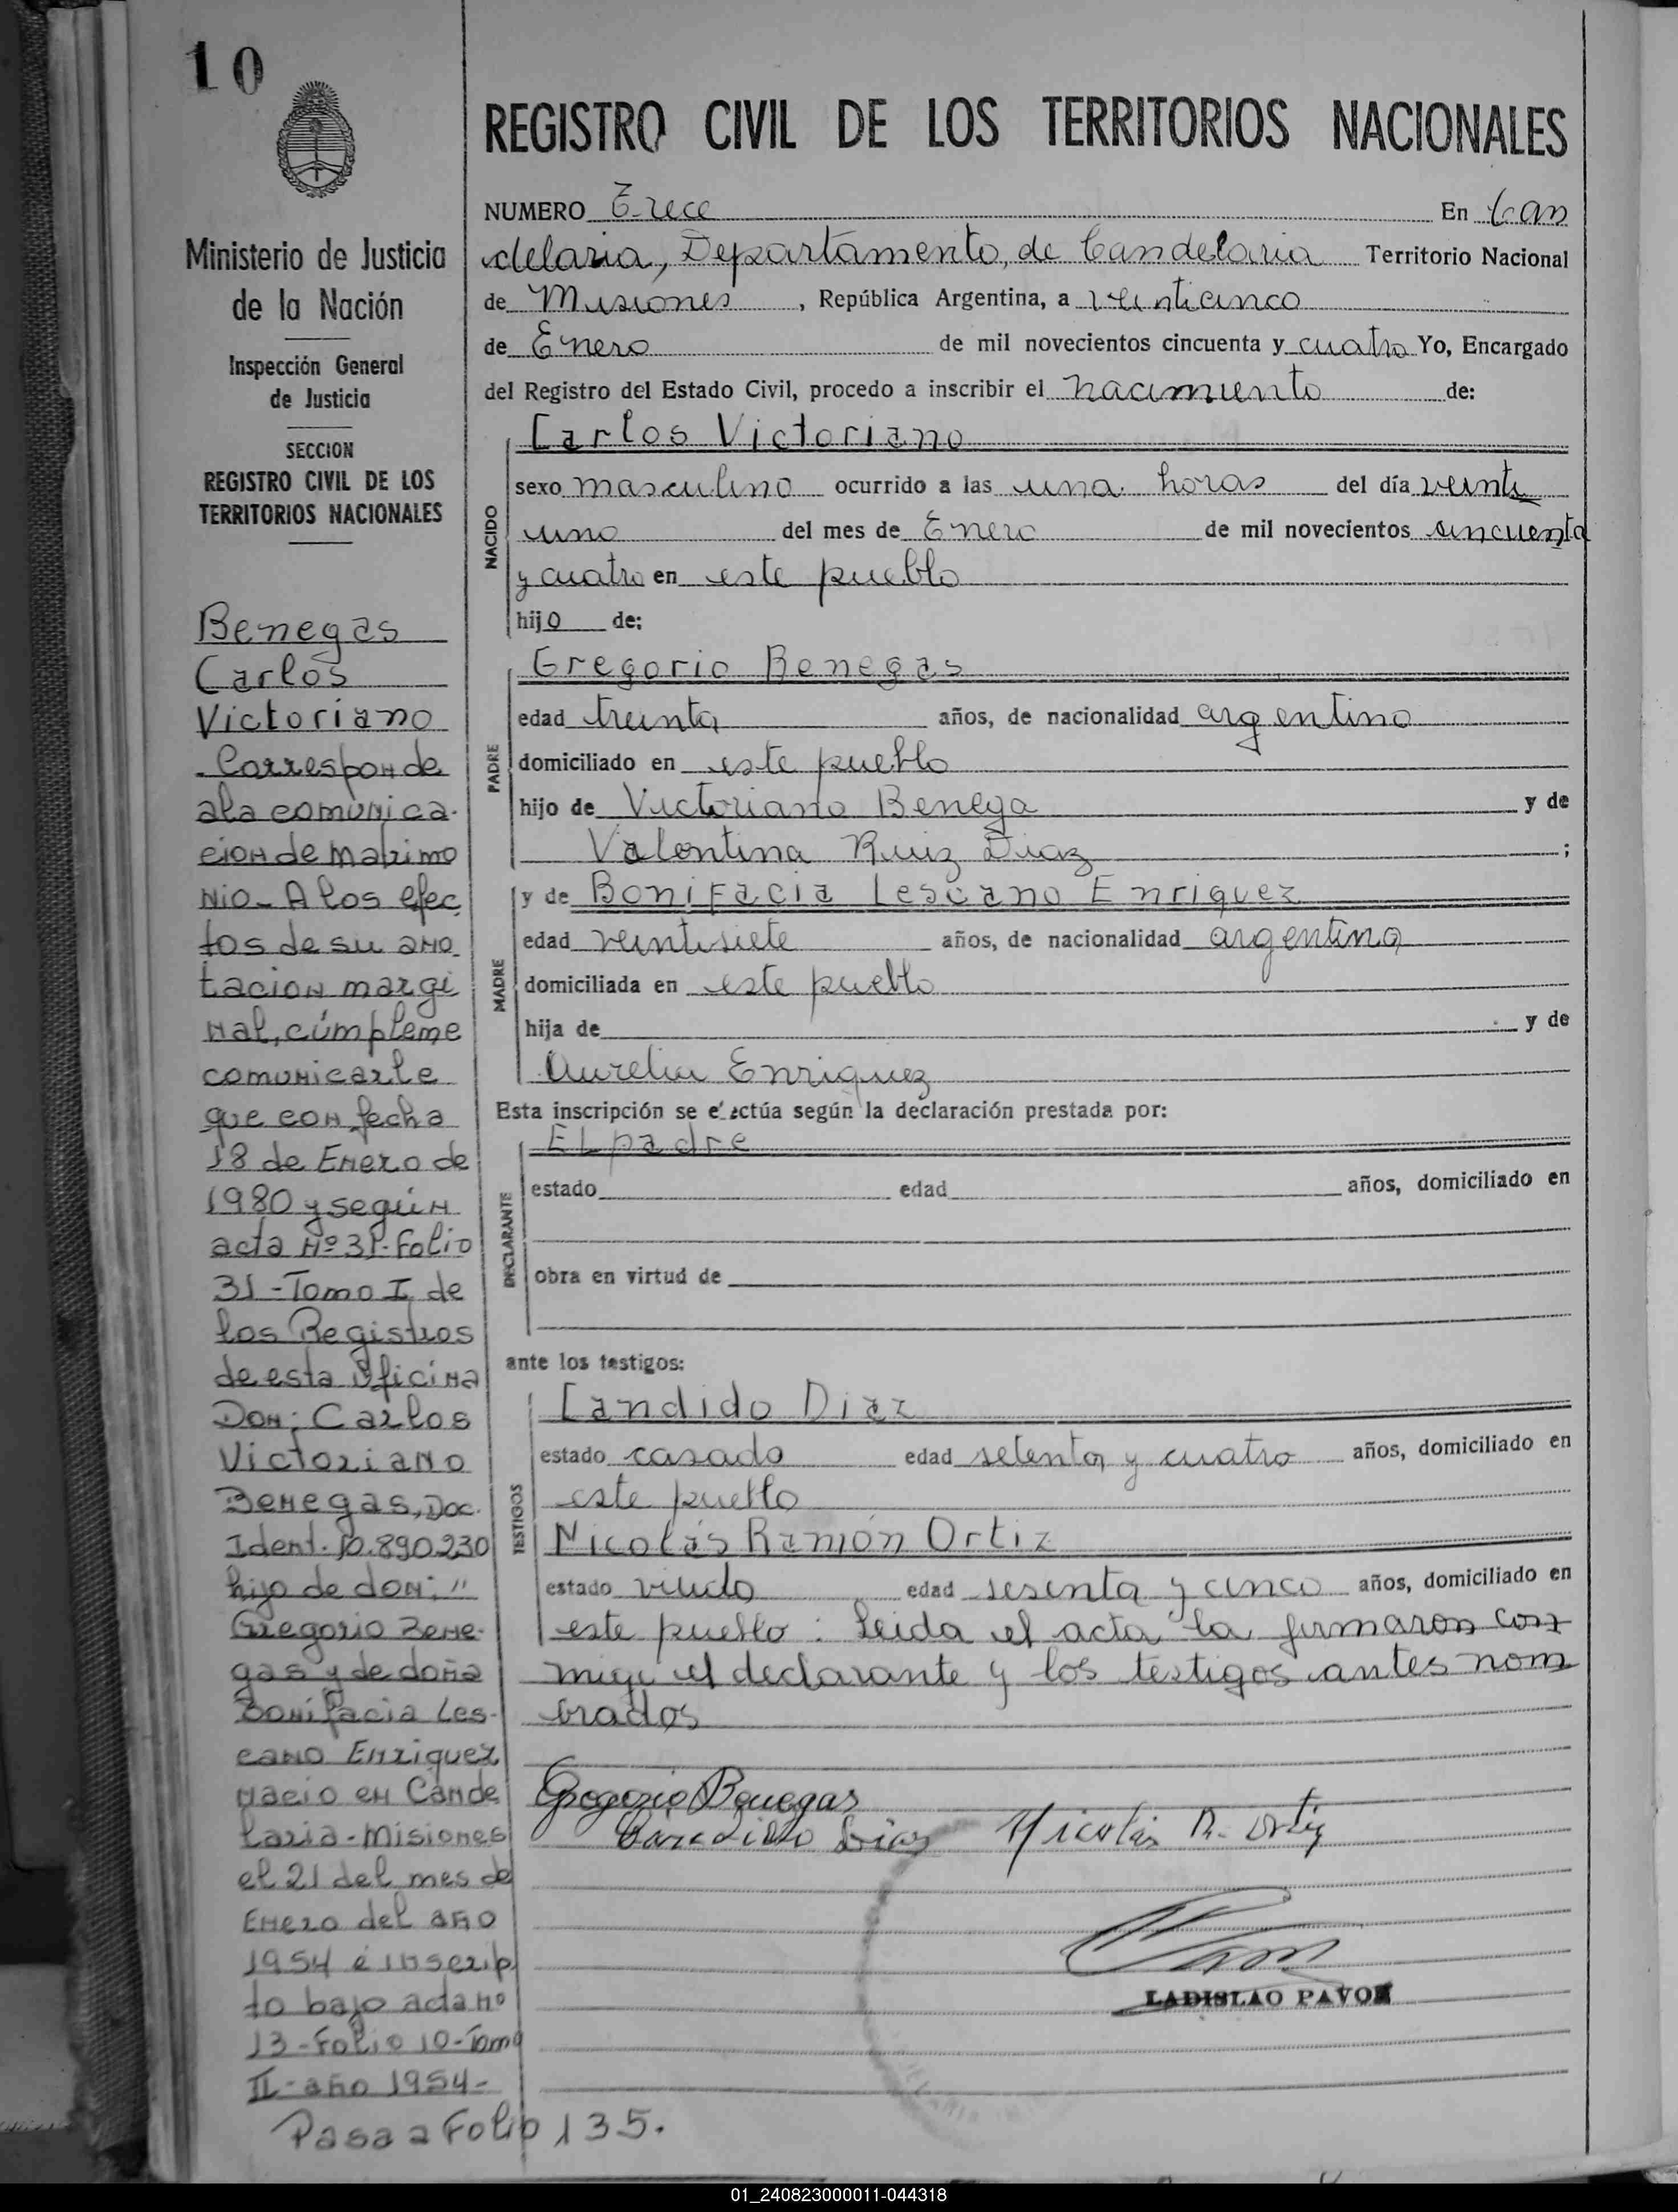 10
REGISTRO CIVIL DE LOS TERRITORIOS NACIONALES
Ministerio de Justicia
de la Nación
Inspección General
de Justicia
SECCION
REGISTRO CIVIL DE LOS
TERRITORIOS NACIONALES
Benegas
Carlos
Victoriano
Corresponde
a la comunica-
cion de matrimo
nio - A los efec
tos de su ano
tacion margi
nal, cúmpleme
comunicarle
que con fecha
18 de Enero de
1980 y según
acta Nº 31-Folio
31-Tomo I de
los Registros
de esta Oficina
Don: Carlos
Victoriano
Benegas, Doc.
Ident. 10.890.230
hijo de don: "
Gregorio Bene-
gas y de doña
Bonifacia Les-
cano Enriquez
nacio en Cande
laria-Misiones
el 21 del mes de
Enero del año
1954 é inscrip
to bajo acta nº
13-Folio 10-Tomo
II-año 1954-
Pasa a Folio 135.
NUMERO Trece En Can
delaria, Departamento, de Candelaria Territorio Nacional
de Misiones, República Argentina, a veinticinco
de Enero de mil novecientos cincuenta y cuatro Yo, Encargado
del Registro del Estado Civil, procedo a inscribir el nacimiento de:
NACIDO
Carlos Victoriano
sexo masculino ocurrido a las una horas del día veinti
uno del mes de Enero de mil novecientos cincuenta
y cuatro en este pueblo
hijo de:
PADRE
Gregorio Benegas
edad treinta años, de nacionalidad argentino
domiciliado en este pueblo
hijo de Victoriano Benega y de
Valentina Ruiz Diaz ;
MADRE
y de Bonifacia Lescano Enriquez
edad veintisiete años, de nacionalidad argentina
domiciliada en este pueblo
hija de y de
Aurelia Enriquez
Esta inscripción se efectúa según la declaración prestada por:
DECLARANTE
El padre
estado edad años, domiciliado en
obra en virtud de
ante los testigos:
TESTIGOS
Candido Diaz
estado casado edad setenta y cuatro años, domiciliado en
este pueblo
Nicolás Ramón Ortiz
estado viudo edad sesenta y cinco años, domiciliado en
este pueblo: Leida el acta la firmaron con
migo el declarante y los testigos antes nom
brados
Gregorio Benegas
Candido Dias Nicolás R. Ortiz
LADISLAO PAVON
01_240823000011-044318